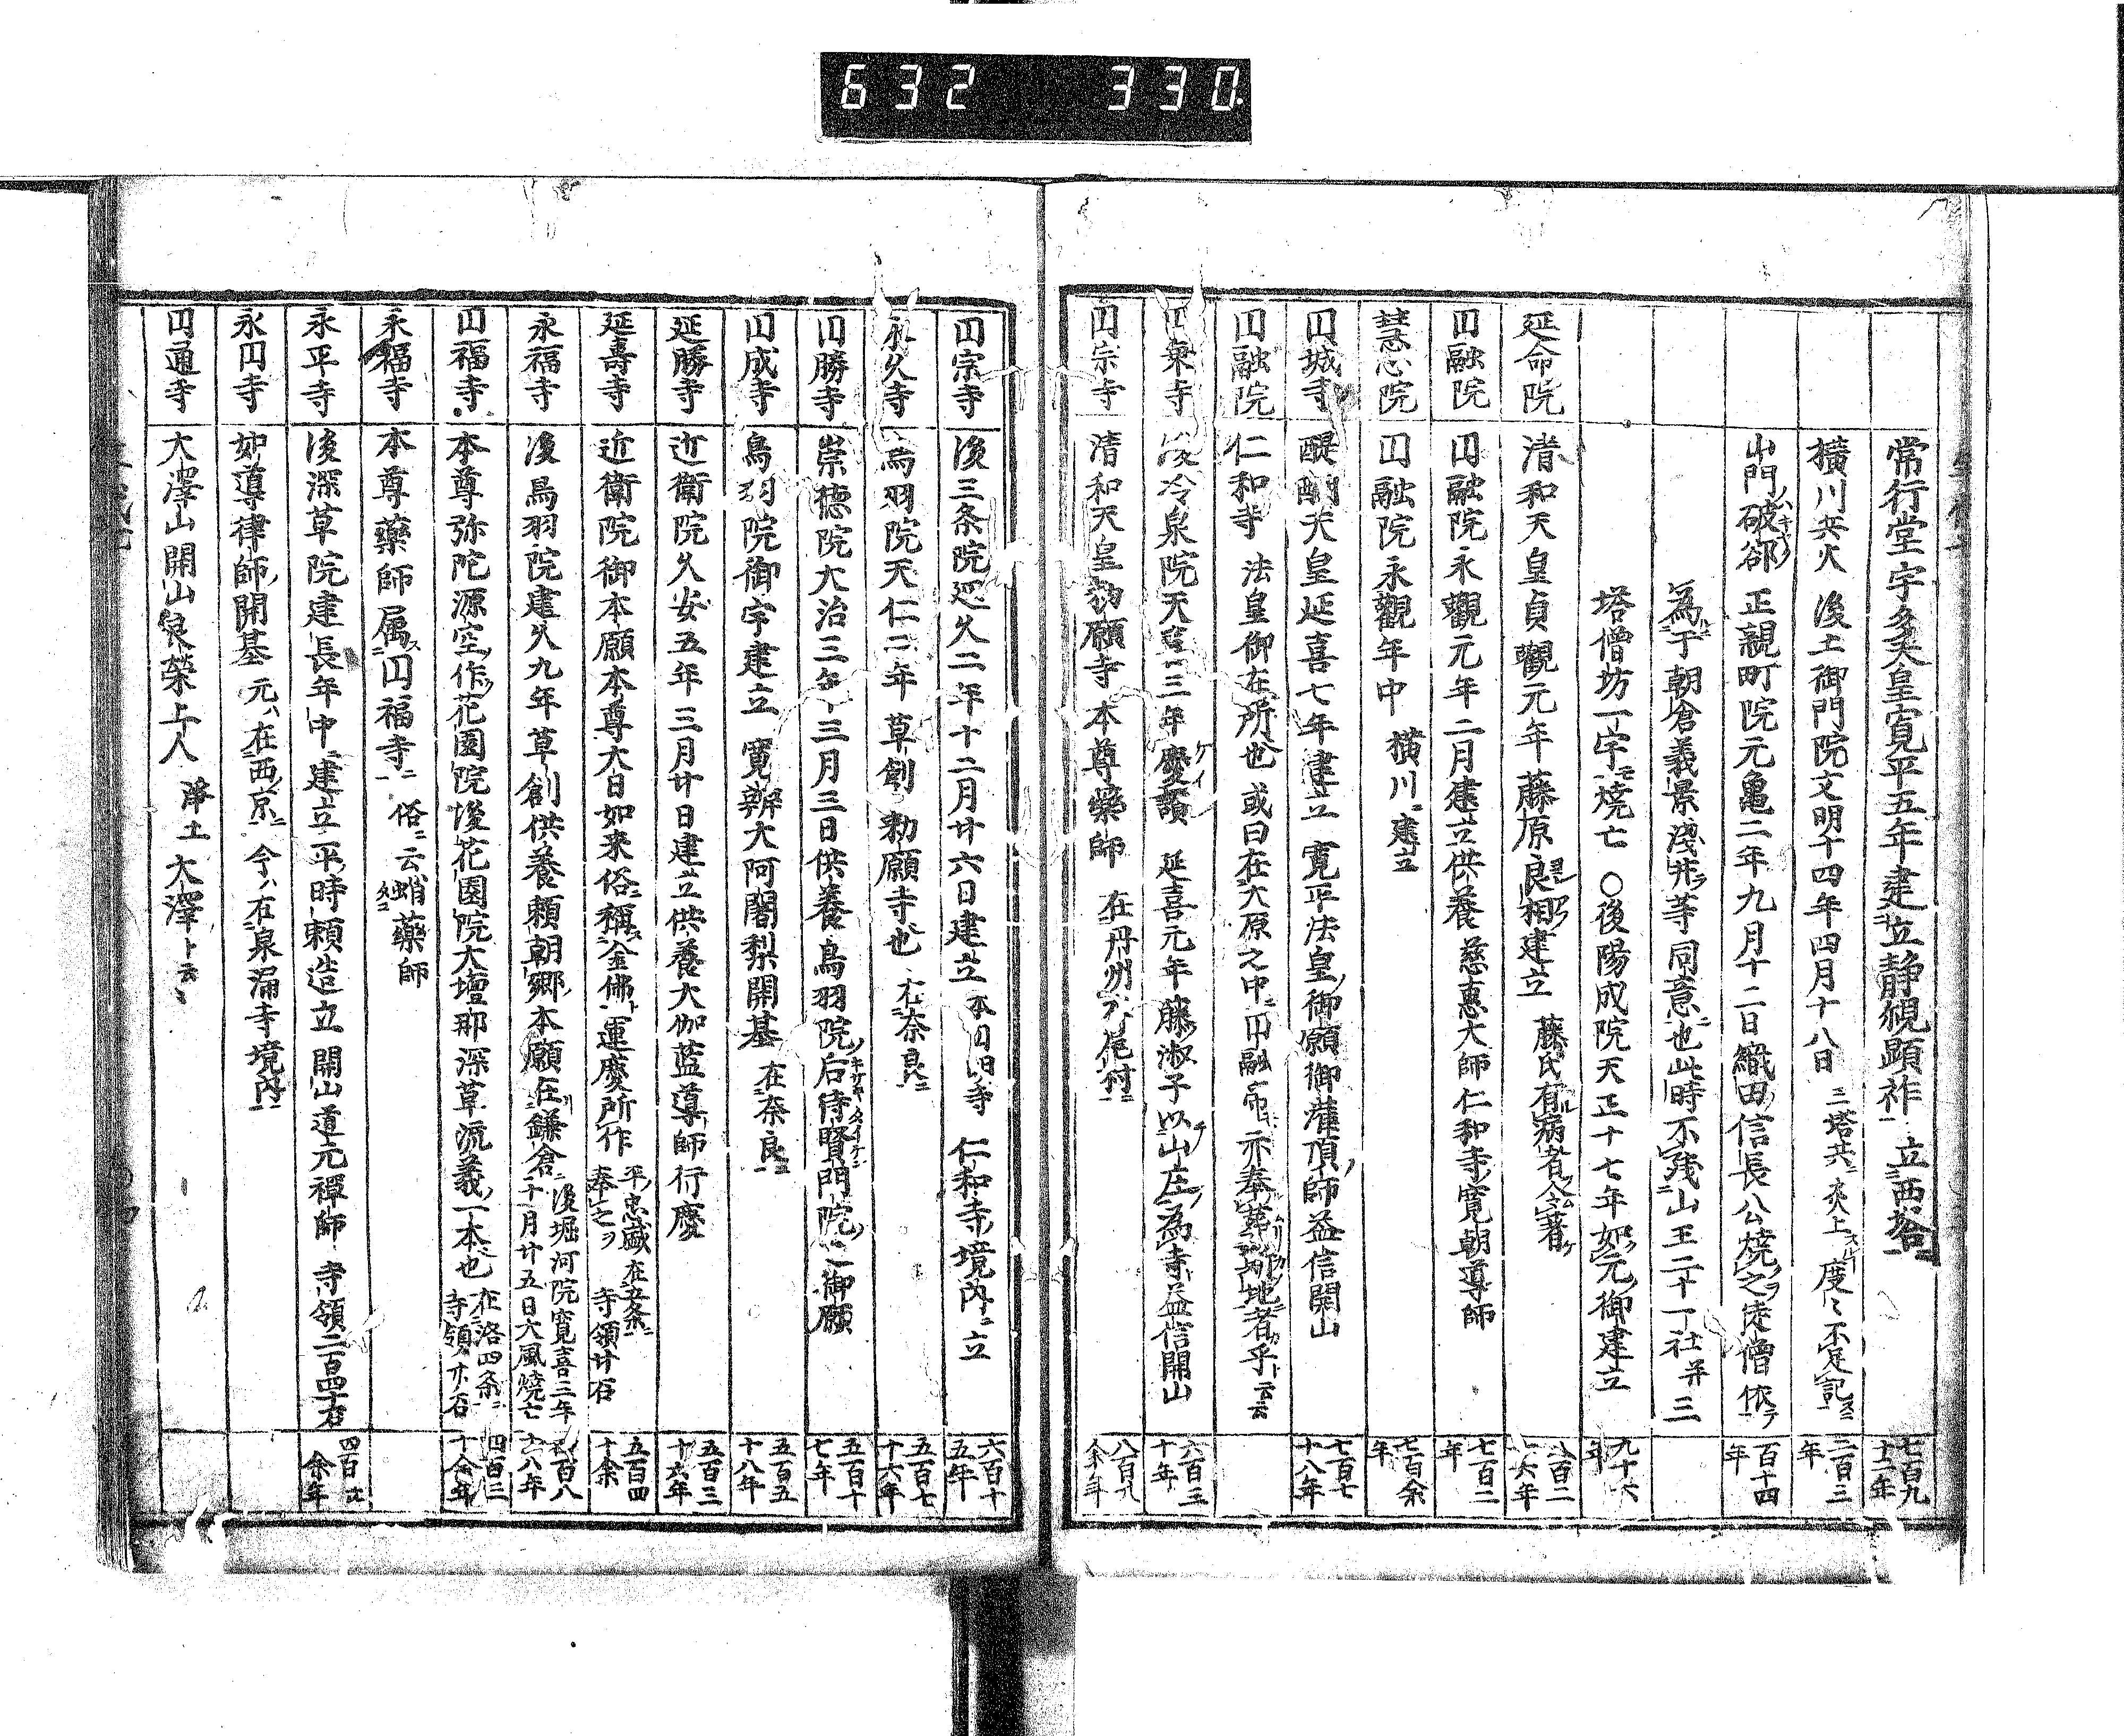 632 330
常行堂 宇多天皇寛平五年建立静観顕祚 立西塔 七百九十二年
横川兵火 後土御門院文明十四年四月十八日 三塔共ニ炎上スルヿ度々不定記ス 二百三年
山門破却 正親町院元亀二年九月十二日織田信長公焼之徒僧依テ 百十四年
為于朝倉義景浅井等同意也此時不残山王二十一社并三
塔僧坊一宇モ焼亡 〇後陽成院天正十七年如元御建立 九十六年
延命院 清和天皇貞観元年藤原良相建立 藤氏有病者令著 八百二十六年
円融院 円融院永観元年二月建立供養 慈惠大師仁和寺寛朝導師 七百二年
慧心院 円融院永観年中 横川ニ建立 七百余年
円城寺 醍醐天皇延喜七年建立 寛平法皇御願御灌頂師益信開山 七百七十八年
円融院 仁和寺 法皇御在所也 或曰在大原之中ニ円融帝亦奉葬所地者乎云云
円乗寺 後冷泉院天喜三年慶讃 延喜元年藤淑子以山庄為寺益信開山 六百三十年
円宗寺 清和天皇勅願寺本尊薬師 在丹州 八百九余年
円宗寺 後三条院延久二年十二月廿六日建立 本円明寺 仁和寺境内ニ立 六百十五年
永久寺 鳥羽院天仁二年草創 勅願寺也 在奈良ニ 五百七十六年
円勝寺 崇徳院大治三年三月三日供養 鳥羽院后待賢門院之御願 五百十七年
円成寺 鳥羽院御宇建立 寛辨大阿闍梨開基 在奈良ニ 五百五十八年
延勝寺 近衛院久安五年三月廿日建立供養大伽藍導師行慶 五百三十六年
延壽寺 近衛院御本願本尊大日如来俗ニ称金佛ト運慶所作 平忠盛奉之ヲ 在五条ニ 寺領廿石 五百四十余
永福寺 後鳥羽院建久九年草創供養頼朝郷本願在鎌倉ニ 後堀河院寛喜三年十一月廿五日大風焼亡 四百八十八年
円福寺 本尊弥陀源空作花園院後花園院大壇那深草流義一本也 在洛四条ニ 寺領廾石 四百三十余年
永福寺 本尊薬師属円福寺ニ 俗ニ云蛸薬師
永平寺 後深草院建長年中ニ建立平時頼造立 開山道元禅師 寺領二百四十石 四百廿余年
永円寺 如導律師開基 元ハ在西京ニ 今ハ在泉涌寺境内ニ
円通寺 大澤山開山良栄上人 浄土大澤ト云々